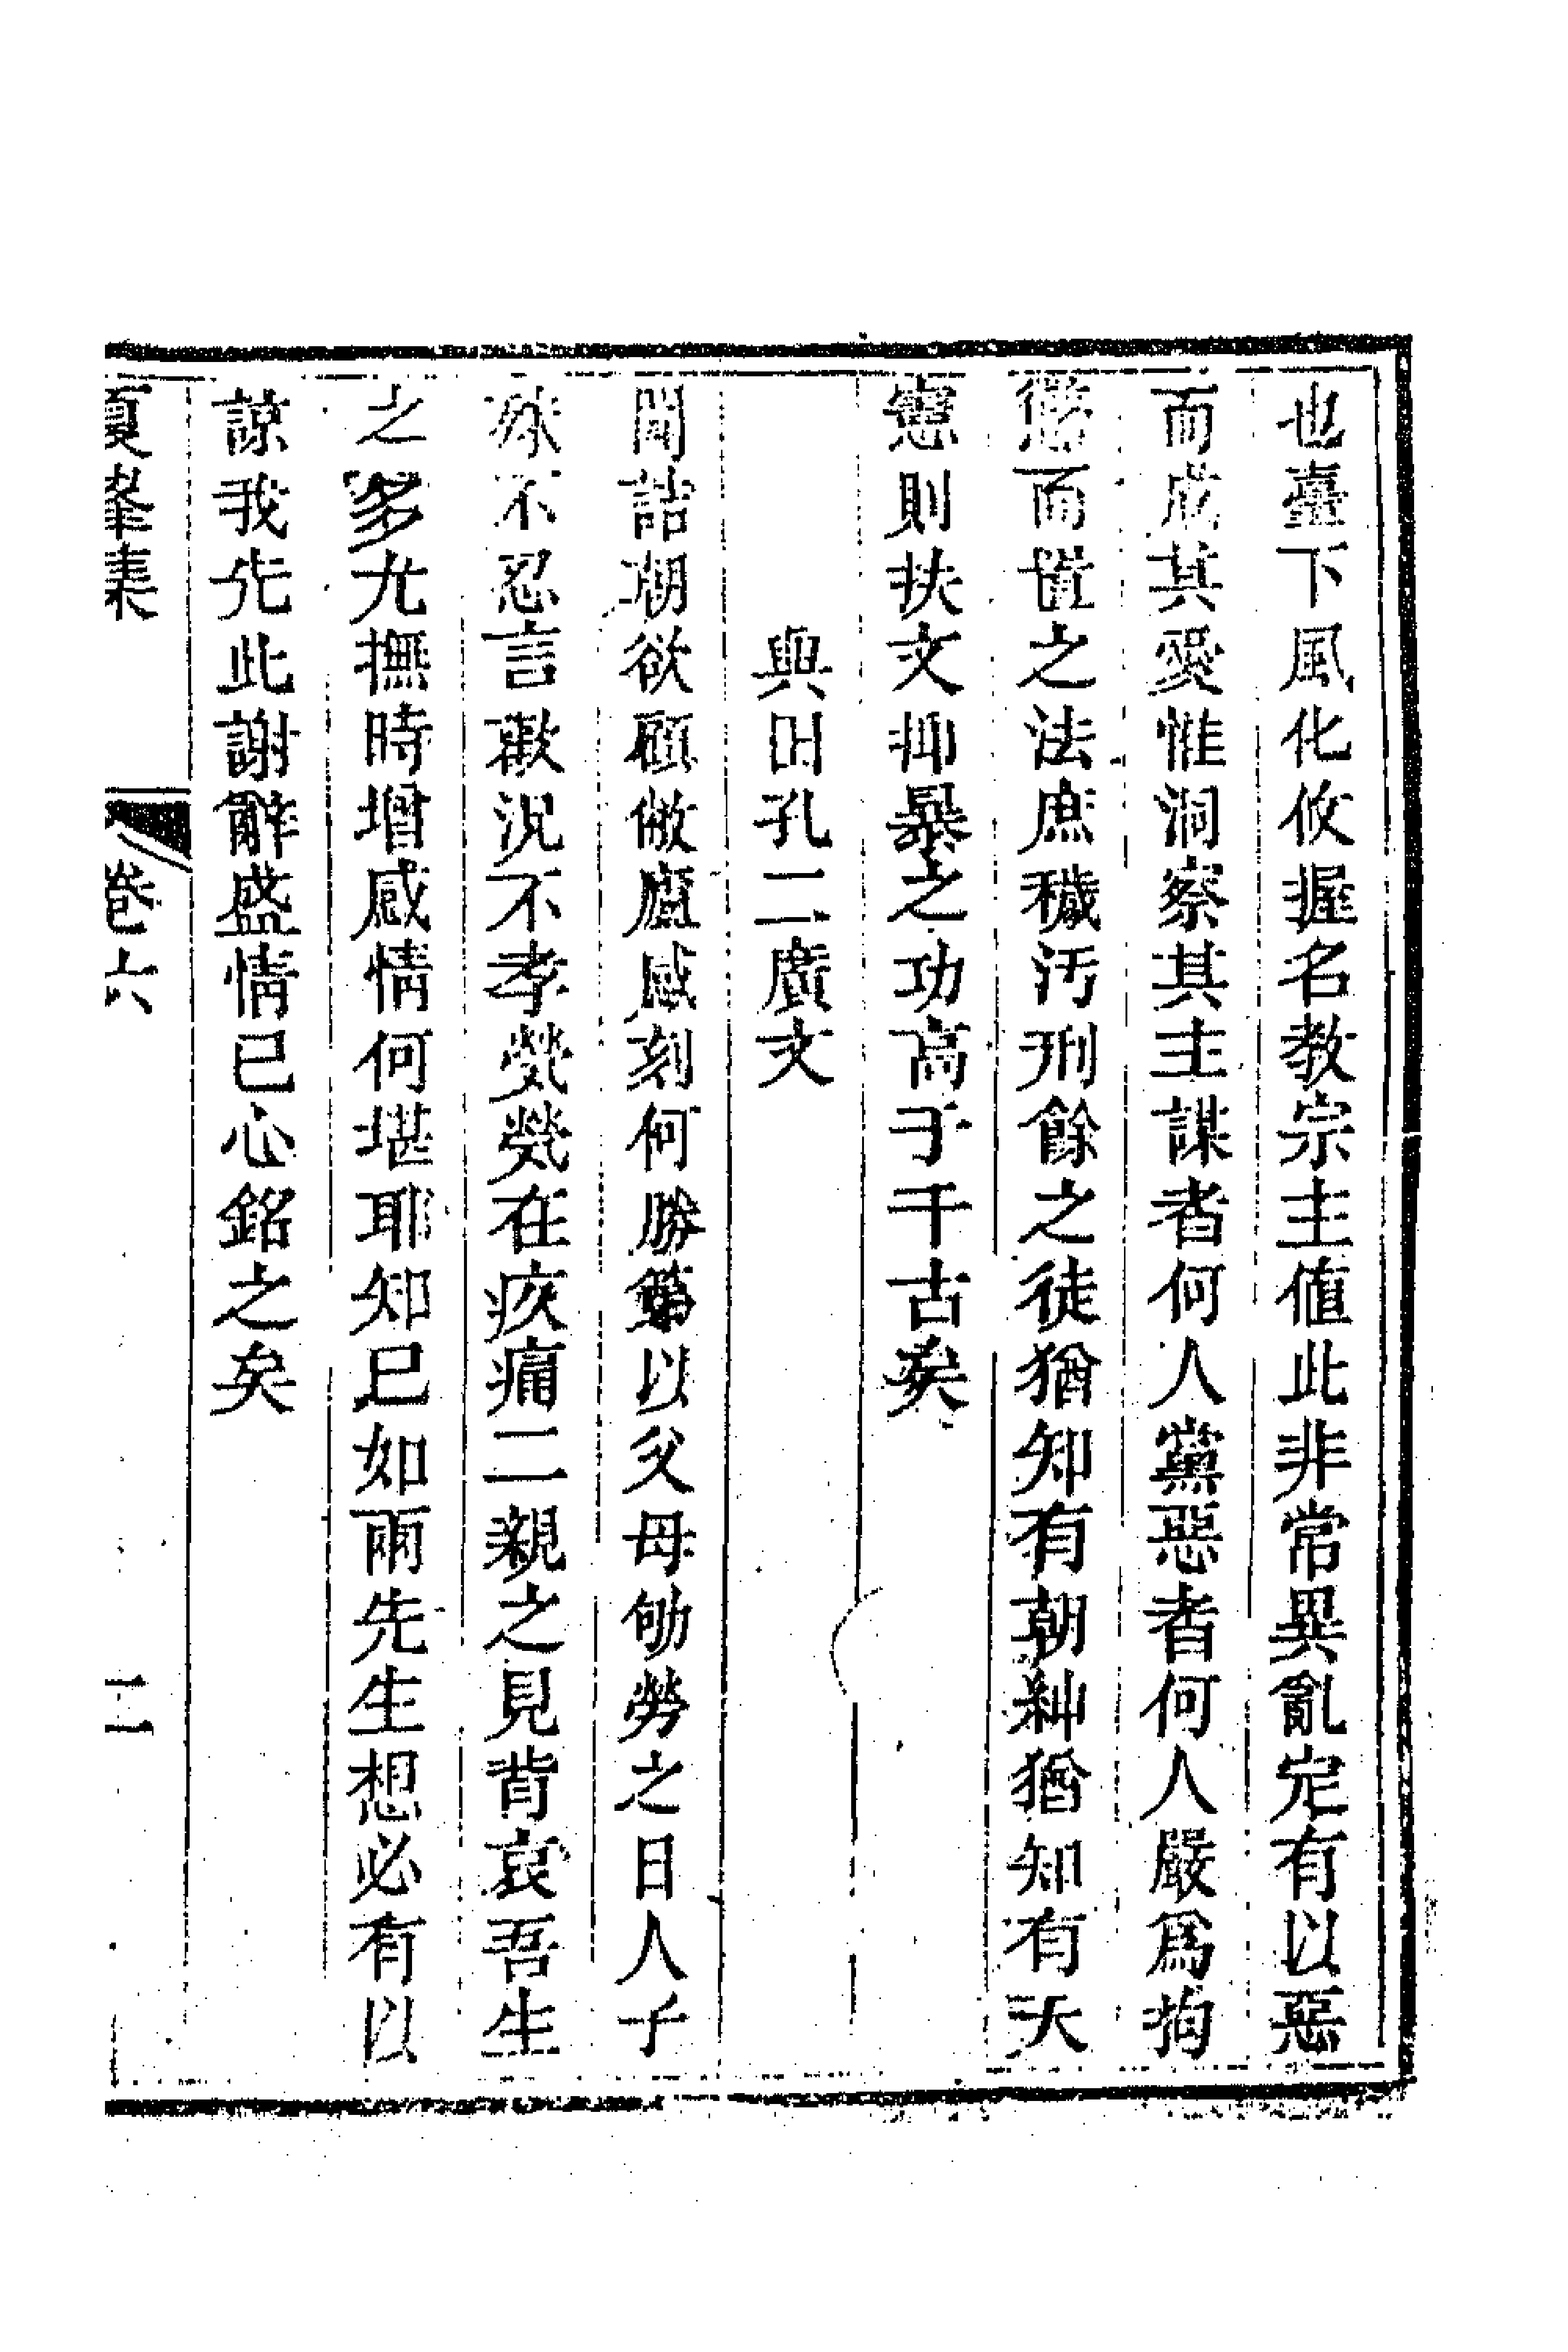 也臺下風化攸握名教宗主値此非常異亂定有以惡
而成其愛惟洞察其主謀者何人黨惡者何人嚴爲拘
懲而置之法庶穢汚刑餘之徒猶知有朝紳猶知有天
憲則扶文抑暴之功高于千古矣
與田孔二廣文
聞詰朝欲顧敝廬感刻何勝第以父母劬勞之日人子
殊不忍言歡況不孝煢煢在疚痛二親之見背哀吾生
之多尤撫時增感情何堪耶知己如兩先生想必有以
諒我先此謝辭盛情已心銘之矣
夏峯集 卷六 二